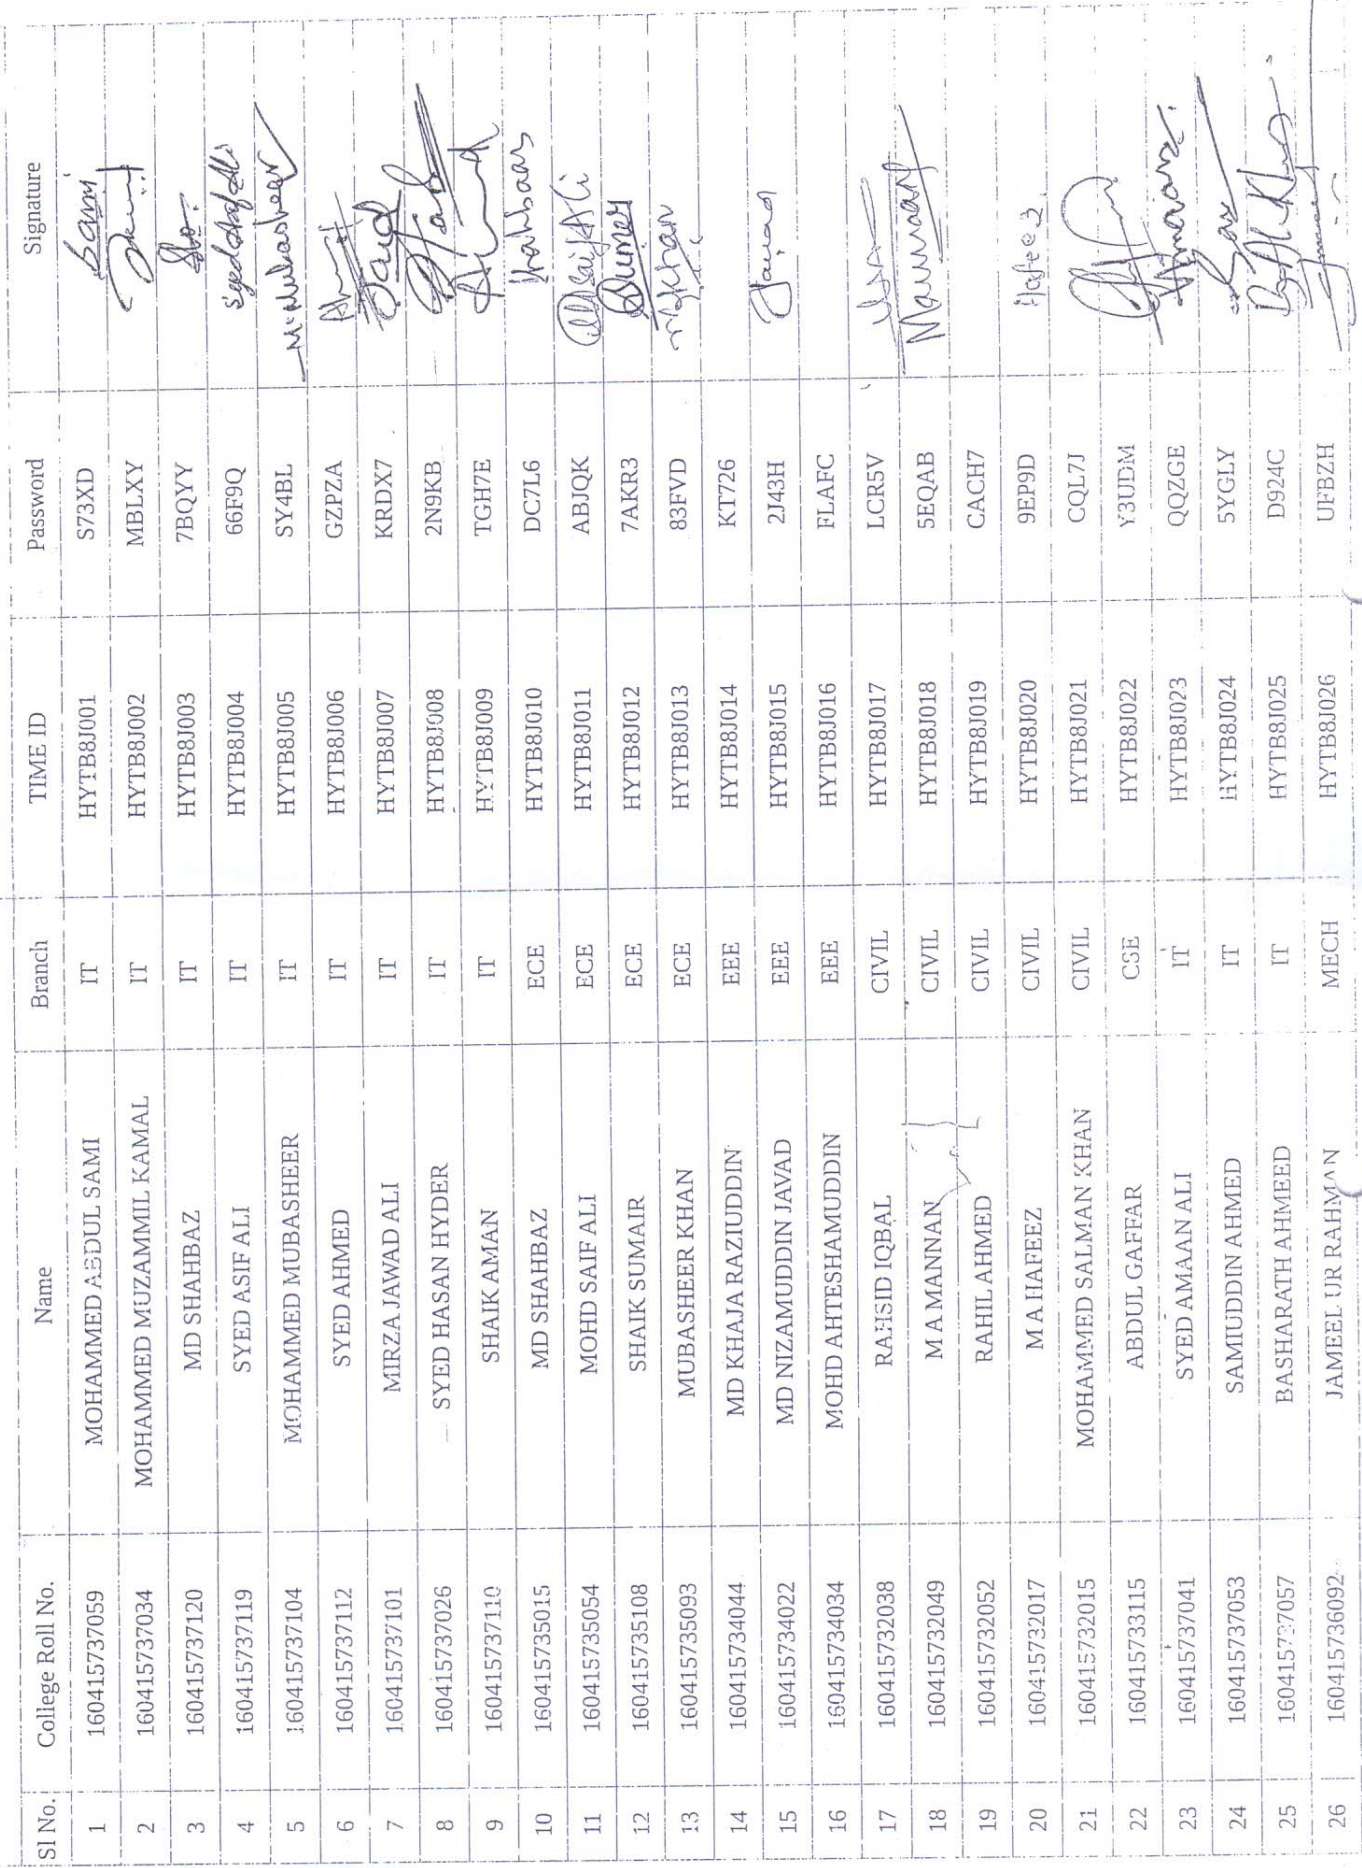 Sl No. College Roll No. Name Branch TIME ID Password Signature
1 160415737059 MOHAMMED ABDUL SAMI IT HYTB8J001 S73XD Sami
2 160415737034 MOHAMMED MUZAMMIL KAMAL IT HYTB8J002 MBLXY
3 160415737120 MD SHAHBAZ IT HYTB8J003 7BQYY
4 160415737119 SYED ASIF ALI IT HYTB8J004 66F9Q
5 160415737104 MOHAMMED MUBASHEER IT HYTB8J005 SY4BL
6 160415737112 SYED AHMED IT HYTB8J006 GZPZA
7 160415737101 MIRZA JAWAD ALI IT HYTB8J007 KRDX7
8 160415737026 SYED HASAN HYDER IT HYTB8J008 2N9KB
9 160415737110 SHAIK AMAN IT HYTB8J009 TGH7E
10 160415735015 MD SHAHBAZ ECE HYTB8J010 DC7L6
11 160415735054 MOHD SAIF ALI ECE HYTB8J011 ABJQK
12 160415735108 SHAIK SUMAIR ECE HYTB8J012 7AKR3
13 160415735093 MUBASHEER KHAN ECE HYTB8J013 83FVD
14 160415734044 MD KHAJA RAZIUDDIN EEE HYTB8J014 KT726
15 160415734022 MD NIZAMUDDIN JAVAD EEE HYTB8J015 2J43H
16 160415734034 MOHD AHTESHAMUDDIN EEE HYTB8J016 FLAFC
17 160415732038 RAHSID IQBAL CIVIL HYTB8J017 LCR5V
18 160415732049 M A MANNAN CIVIL HYTB8J018 5EQAB
19 160415732052 RAHIL AHMED CIVIL HYTB8J019 CACH7
20 160415732017 M A HAFEEZ CIVIL HYTB8J020 9EP9D Hafeez
21 160415732015 MOHAMMED SALMAN KHAN CIVIL HYTB8J021 CQL7J
22 160415733115 ABDUL GAFFAR CSE HYTB8J022 Y3UDM
23 160415737041 SYED AMAAN ALI IT HYTB8J023 QQZGE
24 160415737053 SAMIUDDIN AHMED IT HYTB8J024 5YGLY
25 160415737057 BASHARATH AHMEED IT HYTB8J025 D924C
26 160415736092 JAMEEL UR RAHMAN MECH HYTB8J026 UFBZH